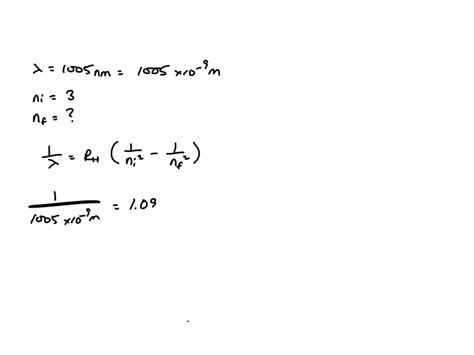 λ = 1005 nm = 1005 ×10⁻⁹ m
ni = 3
nf = ?
1/λ = RH (1/ni² − 1/nf²)
1/(1005 ×10⁻⁹ m) = 1.09